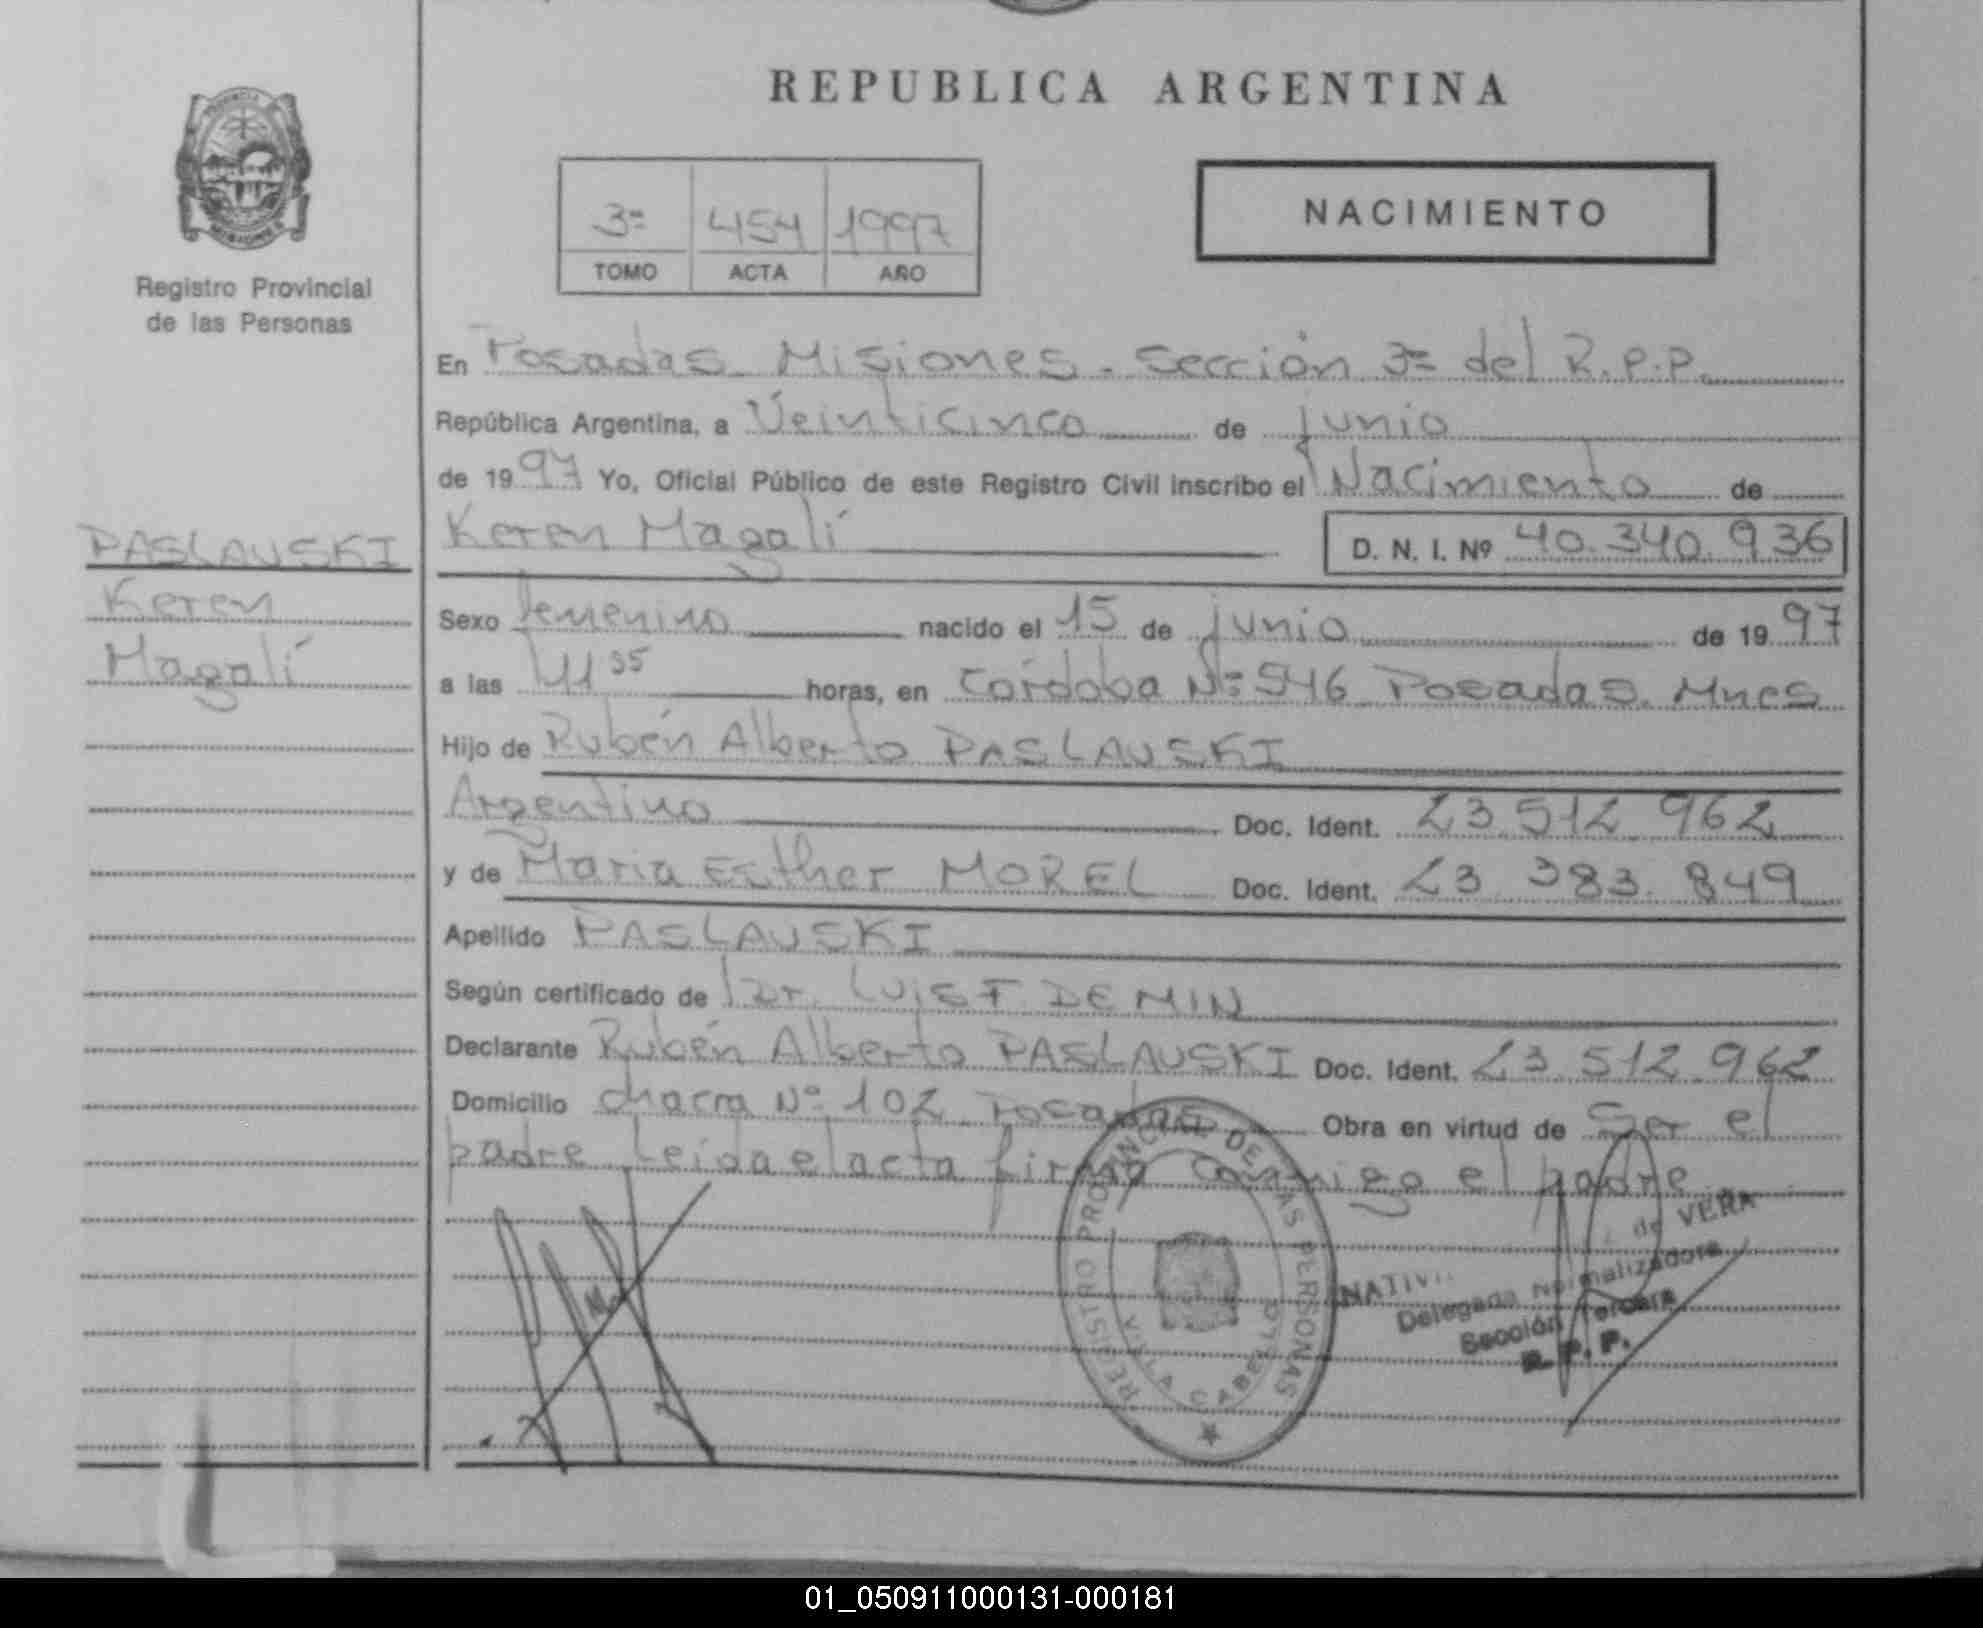 REPUBLICA ARGENTINA
PROVINCIA
MISIONES
Registro Provincial
de las Personas
3ª 454 1997
TOMO ACTA AÑO
NACIMIENTO
En Posadas Misiones. Sección 3ª del R.P.P.
República Argentina, a Veinticinco de junio
de 1997 Yo, Oficial Público de este Registro Civil inscribo el Nacimiento de
Keren Magalí D. N. I. Nº 40.340.936
PASLAUSKI
Keren
Magalí
Sexo femenino nacido el 15 de junio de 1997
a las 11 35 horas, en Córdoba Nº 546 Posadas. Mnes
Hijo de Rubén Alberto PASLAUSKI
Argentino Doc. Ident. 23 512 962
y de Maria Esther MOREL Doc. Ident. 23 383. 849
Apellido PASLAUSKI
Según certificado de Dr. LUIS F DEMIN
Declarante Rubén Alberto PASLAUSKI Doc. Ident. 23 512 962
Domicilio chacra Nº 102 Posadas Obra en virtud de Ser el
padre Leida el acta firma conmigo el padre
REGISTRO PROVINCIAL DE LAS PERSONAS
VILLA CABELLO
de VERA
Delegada Normalizadora
Sección Tercera
R. P. P.
01_050911000131-000181